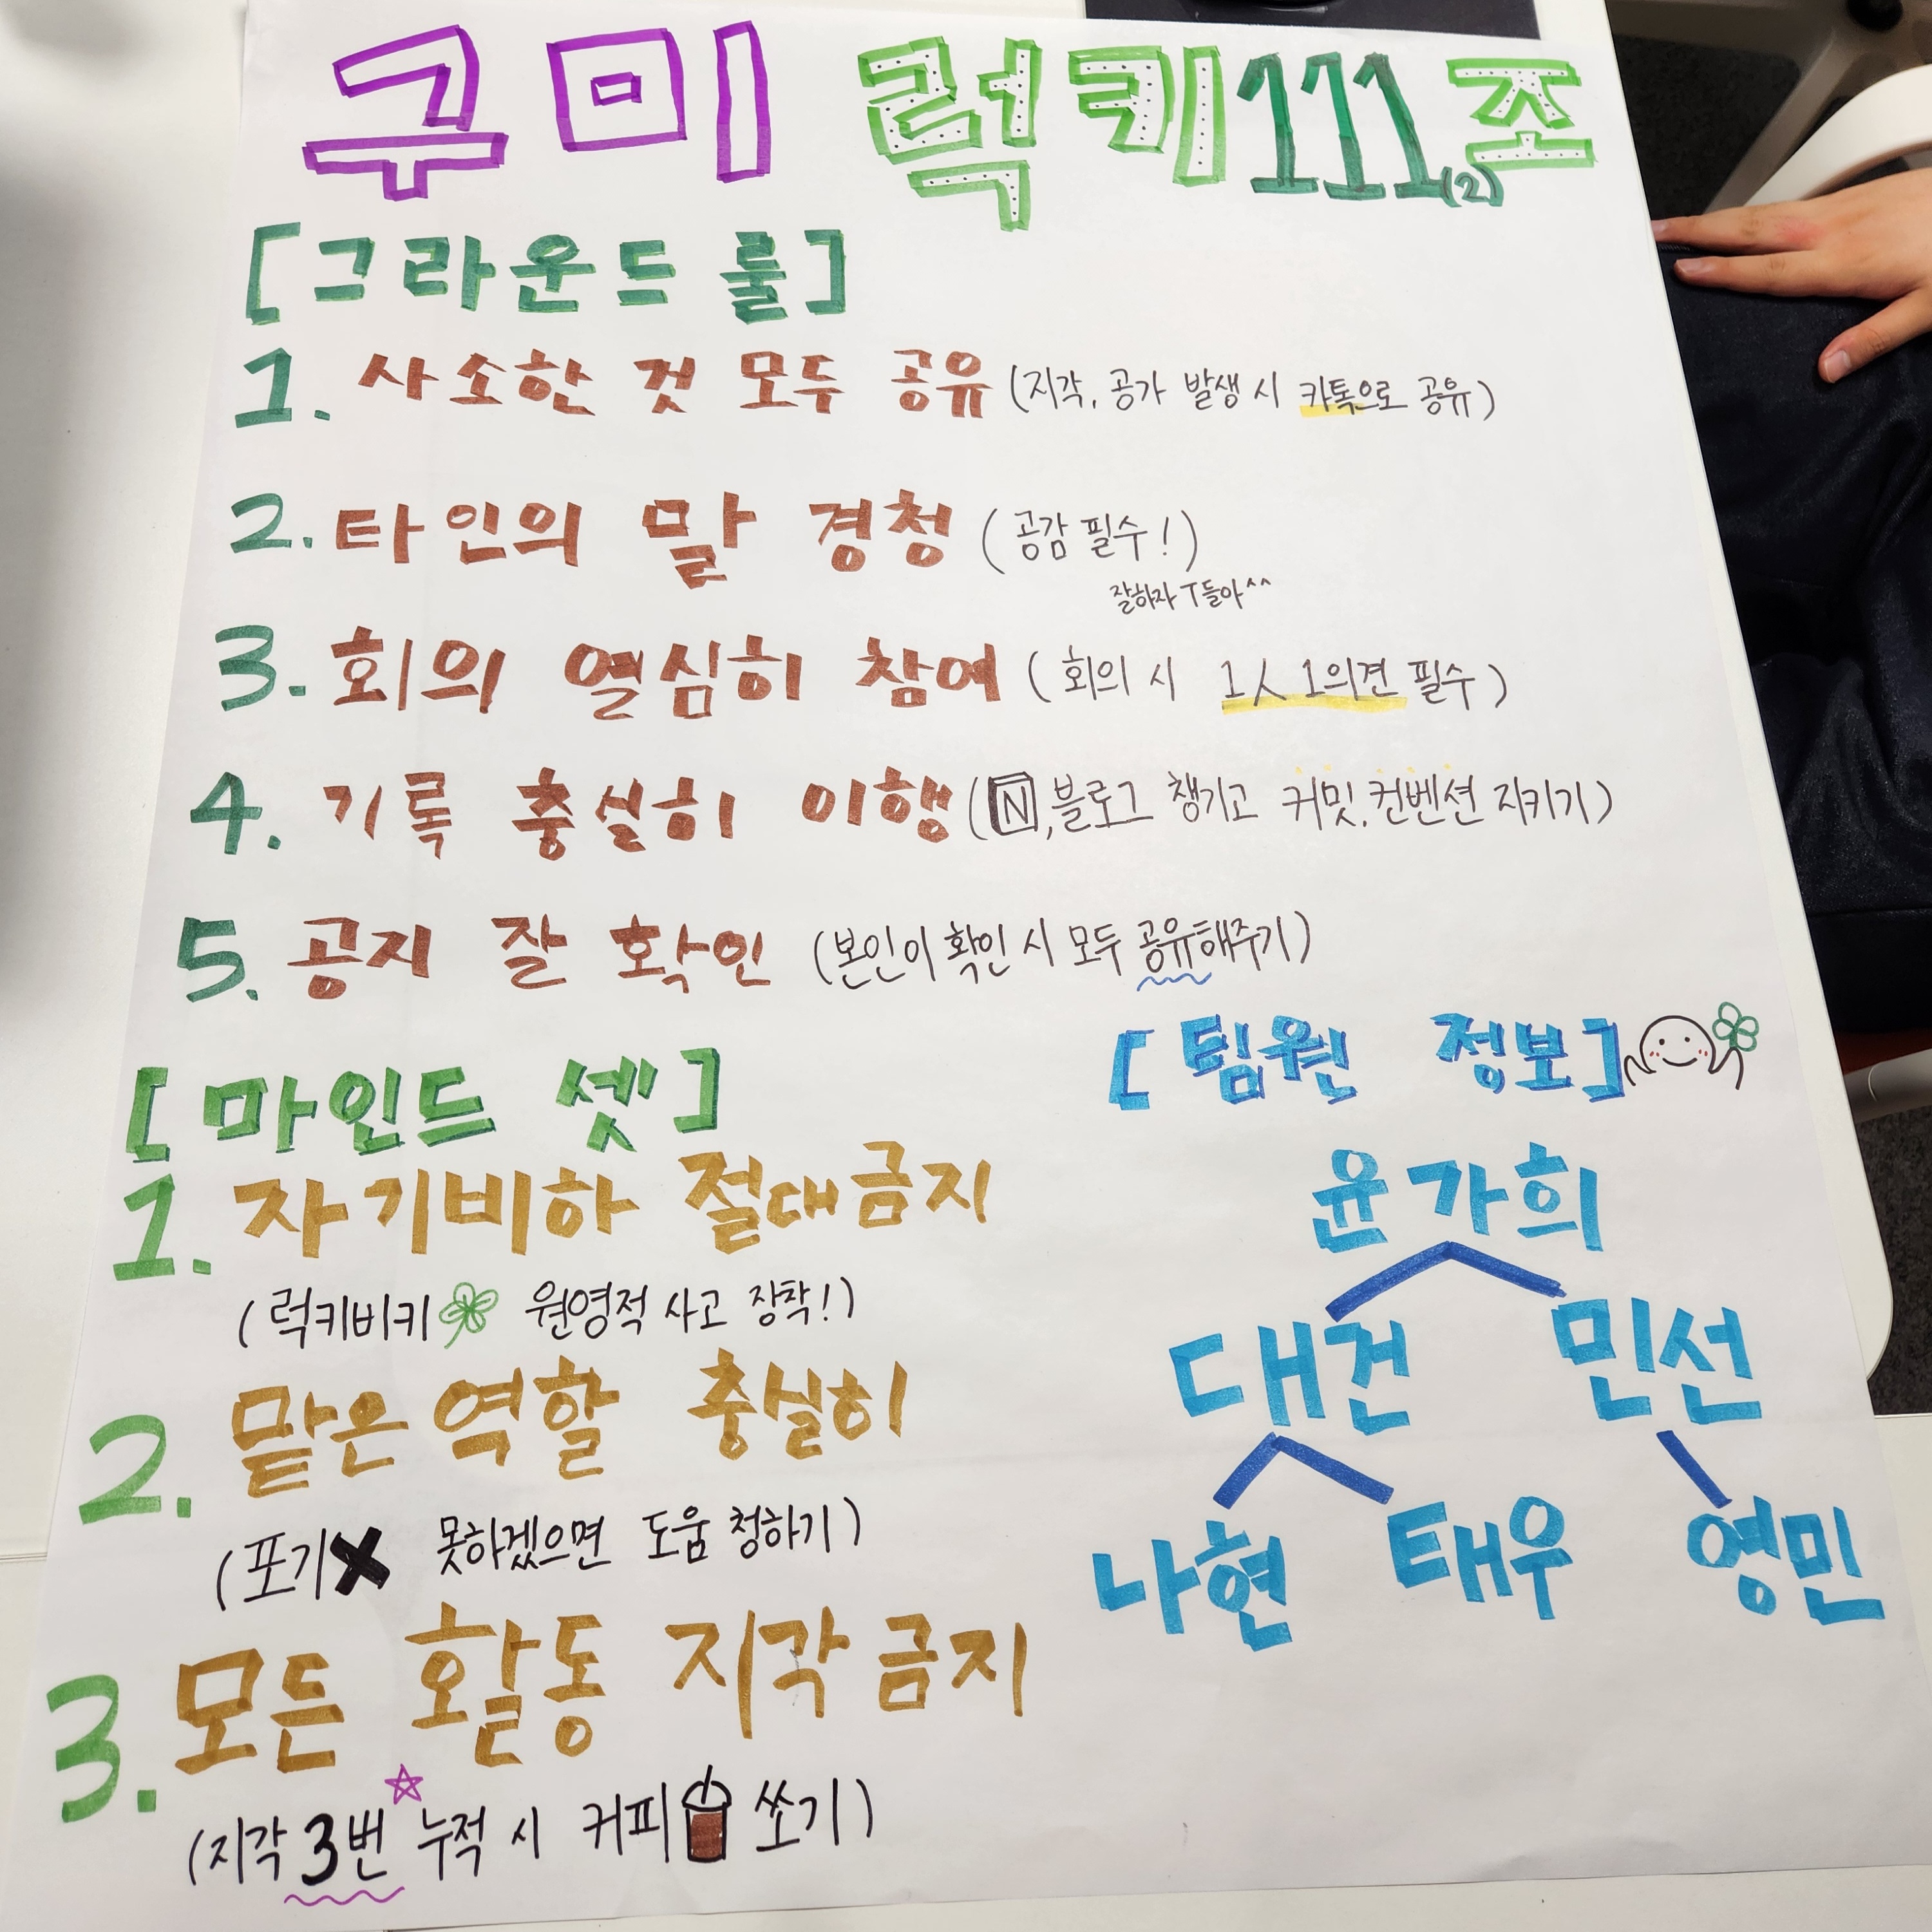 구미 럭키111(2)조
[그라운드 룰]
1. 사소한 것 모두 공유 (지각, 공가 발생 시 카톡으로 공유)
2. 타인의 말 경청 (공감 필수!)
잘하자 T들아^^
3. 회의 열심히 참여 (회의 시 1人 1의견 필수)
4. 기록 충실히 이행 (N, 블로그 챙기고 커밋, 컨벤션 지키기)
5. 공지 잘 확인 (본인이 확인 시 모두 공유해주기)
[마인드 셋]
1. 자기비하 절대금지
(럭키비키 원영적 사고 장착!)
2. 맡은 역할 충실히
(포기X 못하겠으면 도움 청하기)
3. 모든 활동 지각금지
(지각 3번 누적 시 커피 쏘기)
[팀원 정보]
윤가희
대건 민선
나현 태우 영민